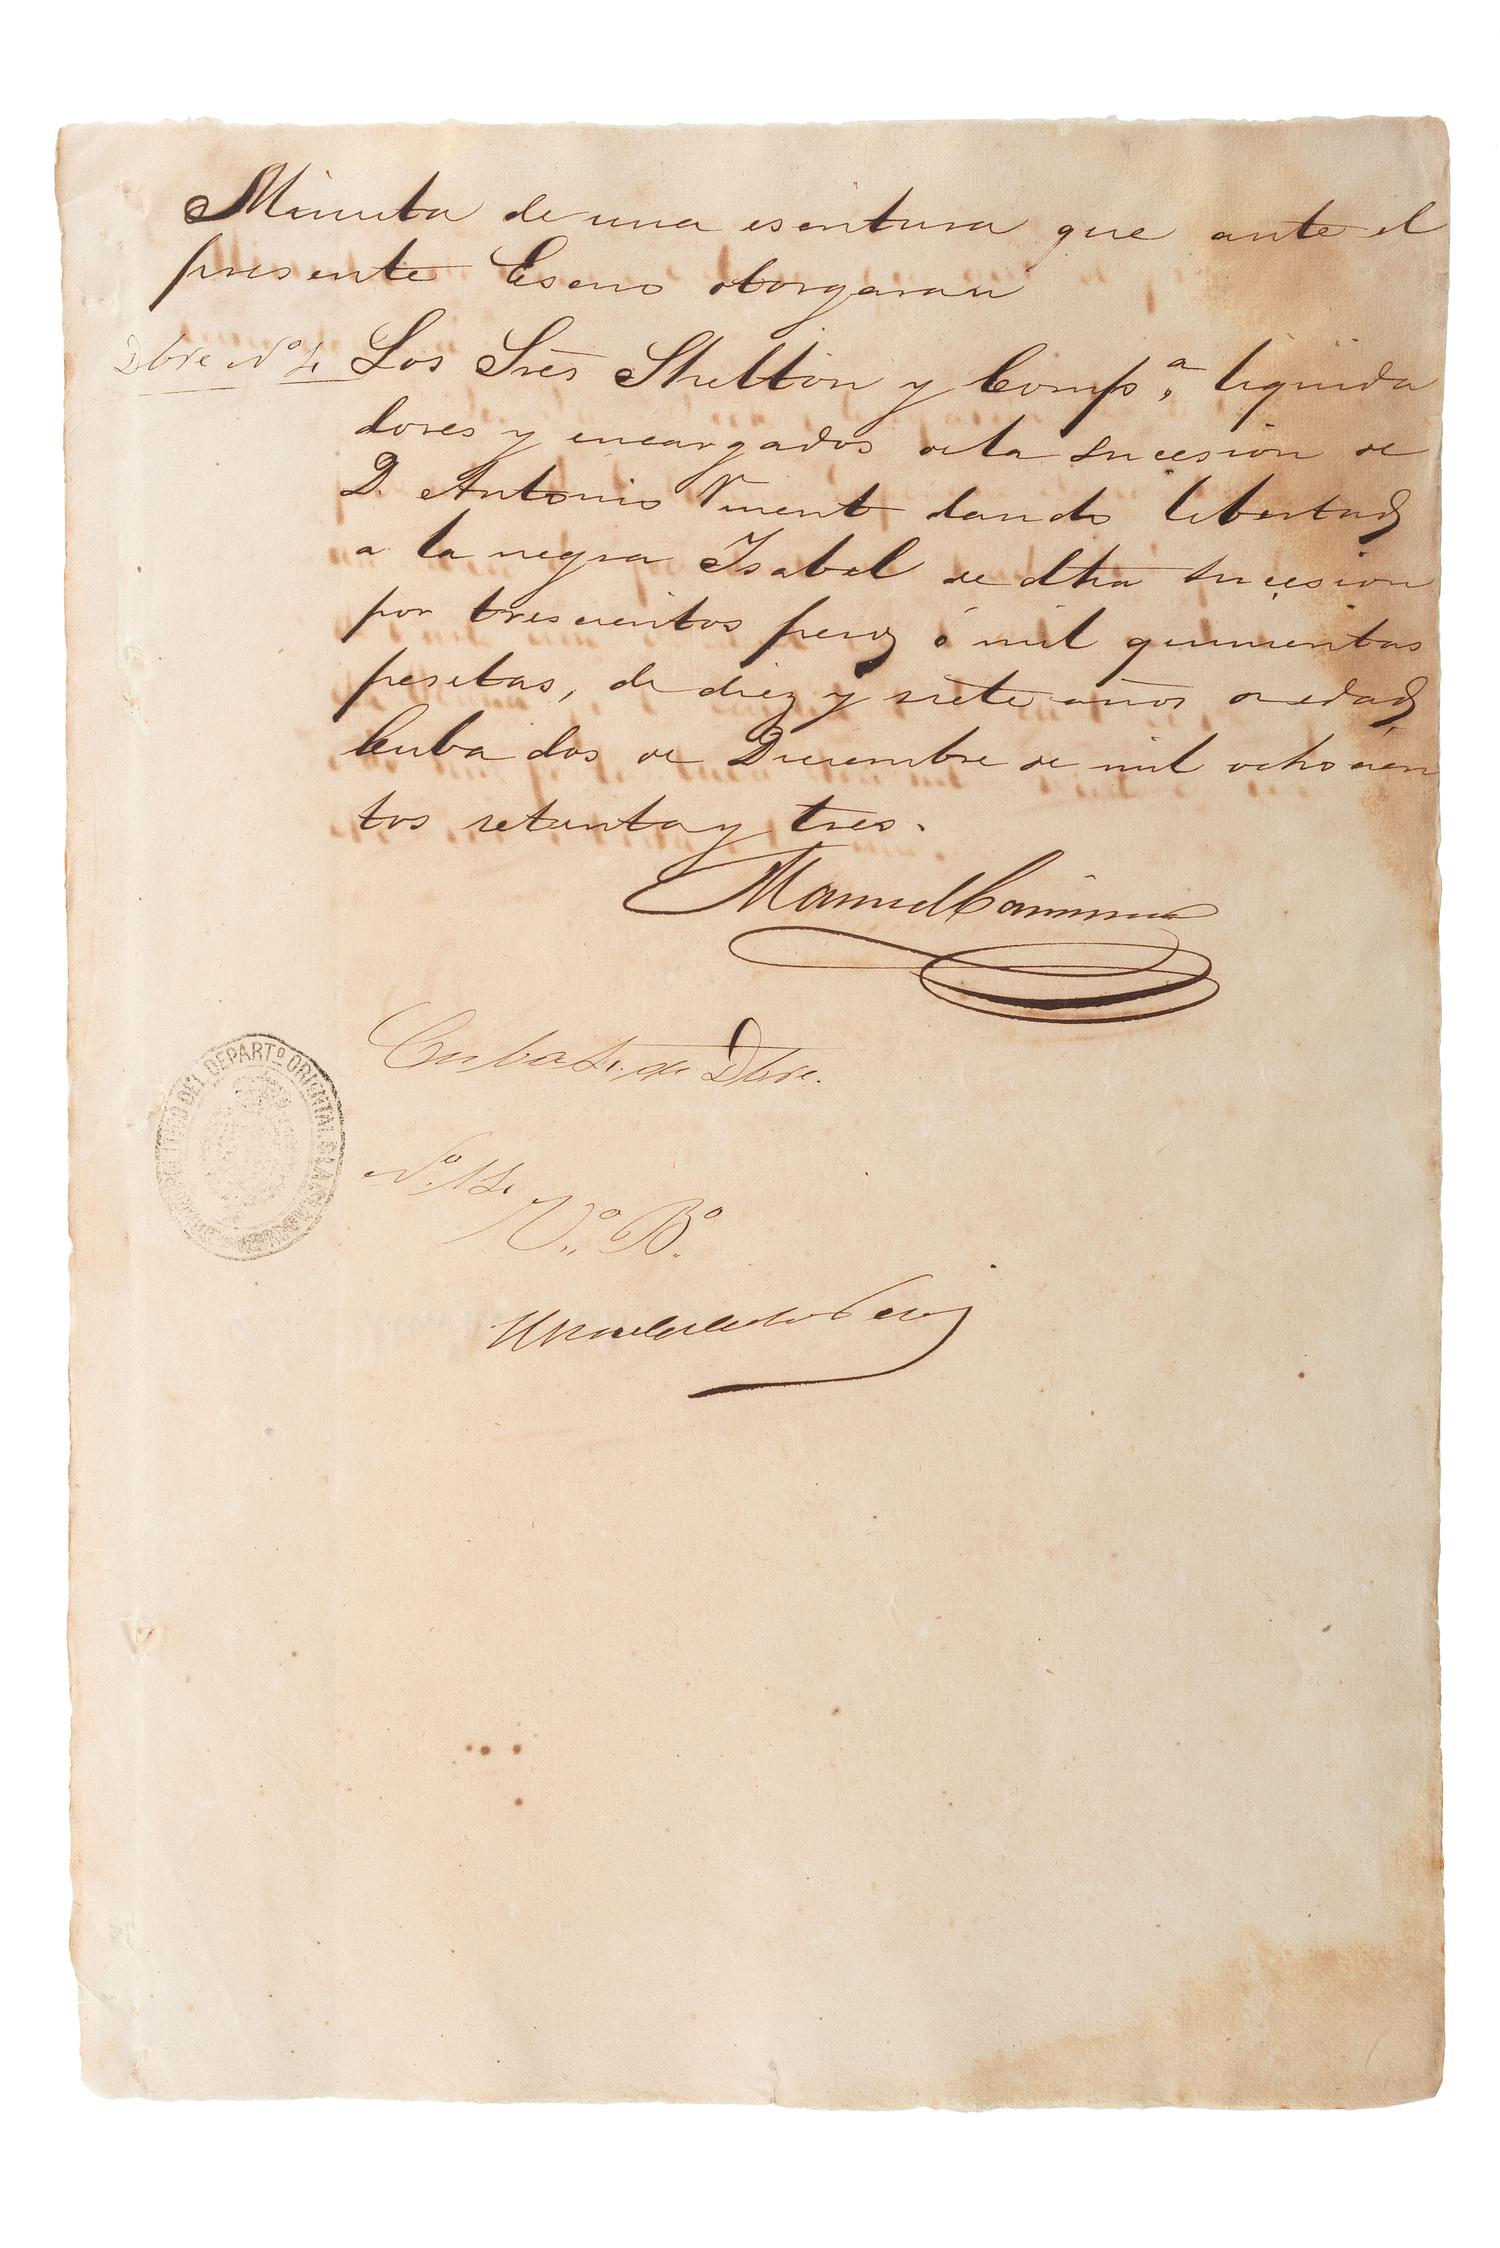 Minuta de una escritura que ante el
presente Escno otorgaran
Dbre Nº 4
Los Sres Shelton y Compª. liquida
dores y encargados de la sucesion de
D. Antonio Vinent dando libertad
a la negra Isabel de dha sucesion
por trescientos pesos ó mil quinientas
pesetas, de diez y siete años de edad,
Cuba dos de Diciembre de mil ochocien
tos setenta y tres.
Manuel Caminero
Cuba 4 de Dbre.
Nº 14
Vº. Bº.
DEL DEPARTº ORIENTAL